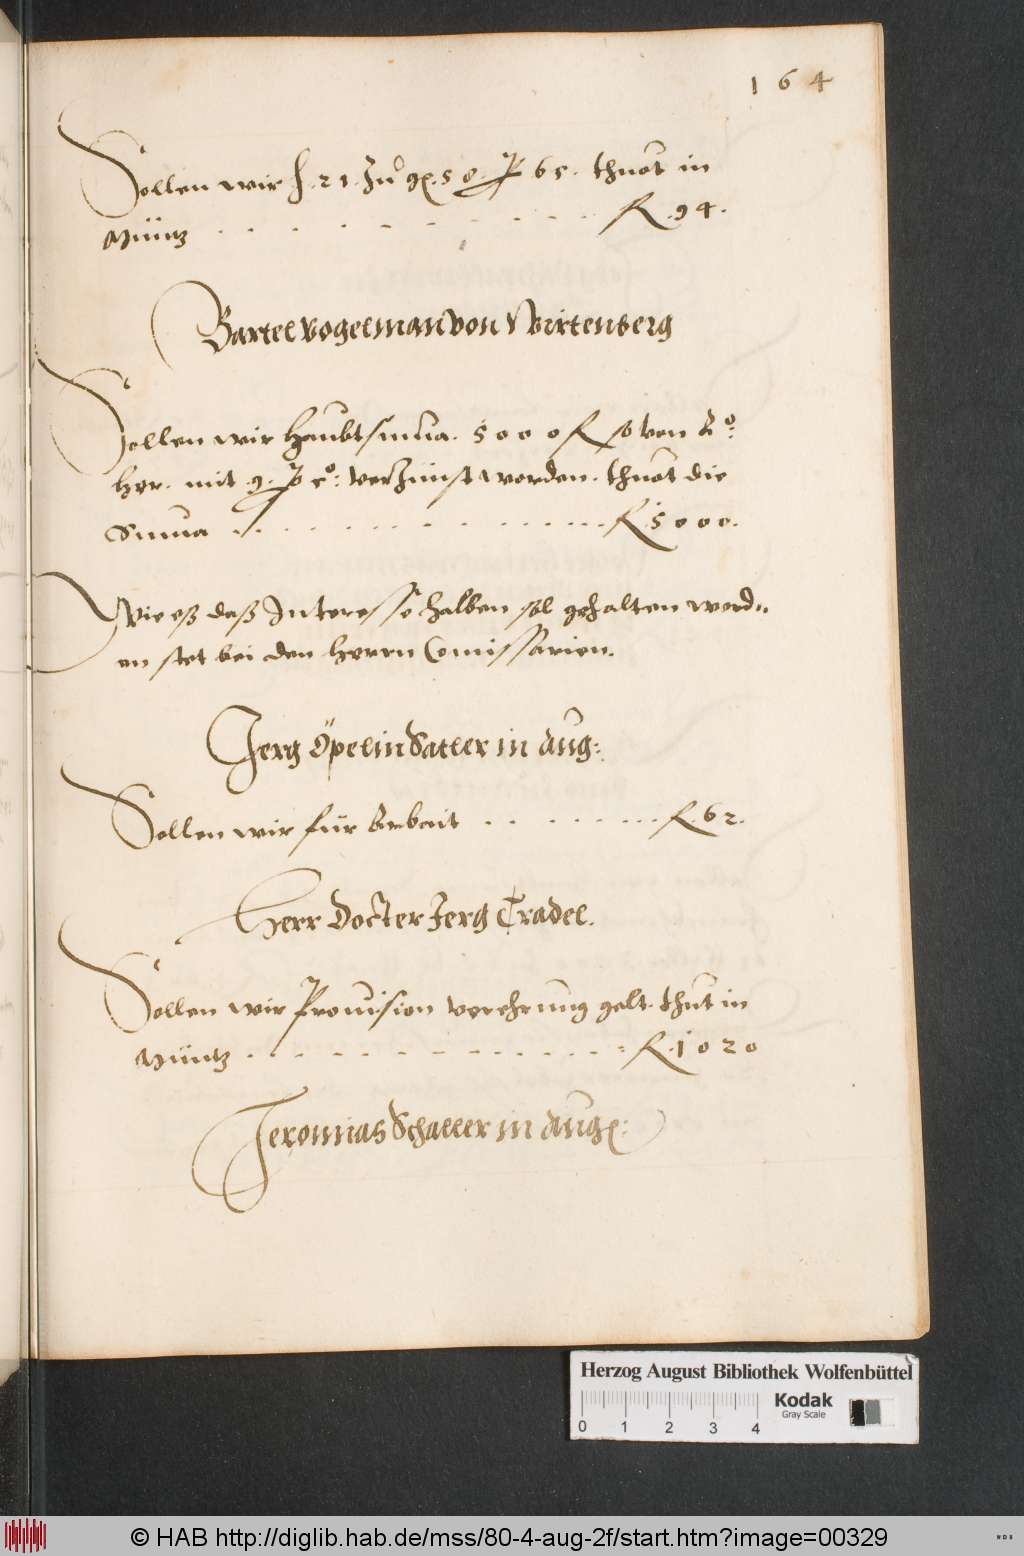 164
Sollen wir f. 21. Zu gr. 50. P 65. thuot in
Müntz . . . . . . . . . . . . R. 94.
Bartel Vogelman von Wirtenberg
Sollen wir Haubtsuma. 5000 R so von Ao:
her. mit .9. P co: verZinst worden. thuot die
Suma . . . . . . . . . . . . . . R. 5000.
Wie eß daß Interesse halben sol gehalten werd„
en stet bei den Herrn Comissarien.
Jerg Öpelin Satler in Aug:
Sollen wir für Arbait . . . . . . . . R. 62.
Herr Docter Jerg Tradel.
Sollen wir Prouision verehrung gelt. thut in
Müntz . . . . . . . . . . . . . . R. 1020
Jeronnias Schaller in Aug:
Herzog August Bibliothek Wolfenbüttel
Kodak
Gray Scale
0 1 2 3 4
© HAB http://diglib.hab.de/mss/80-4-aug-2f/start.htm?image=00329